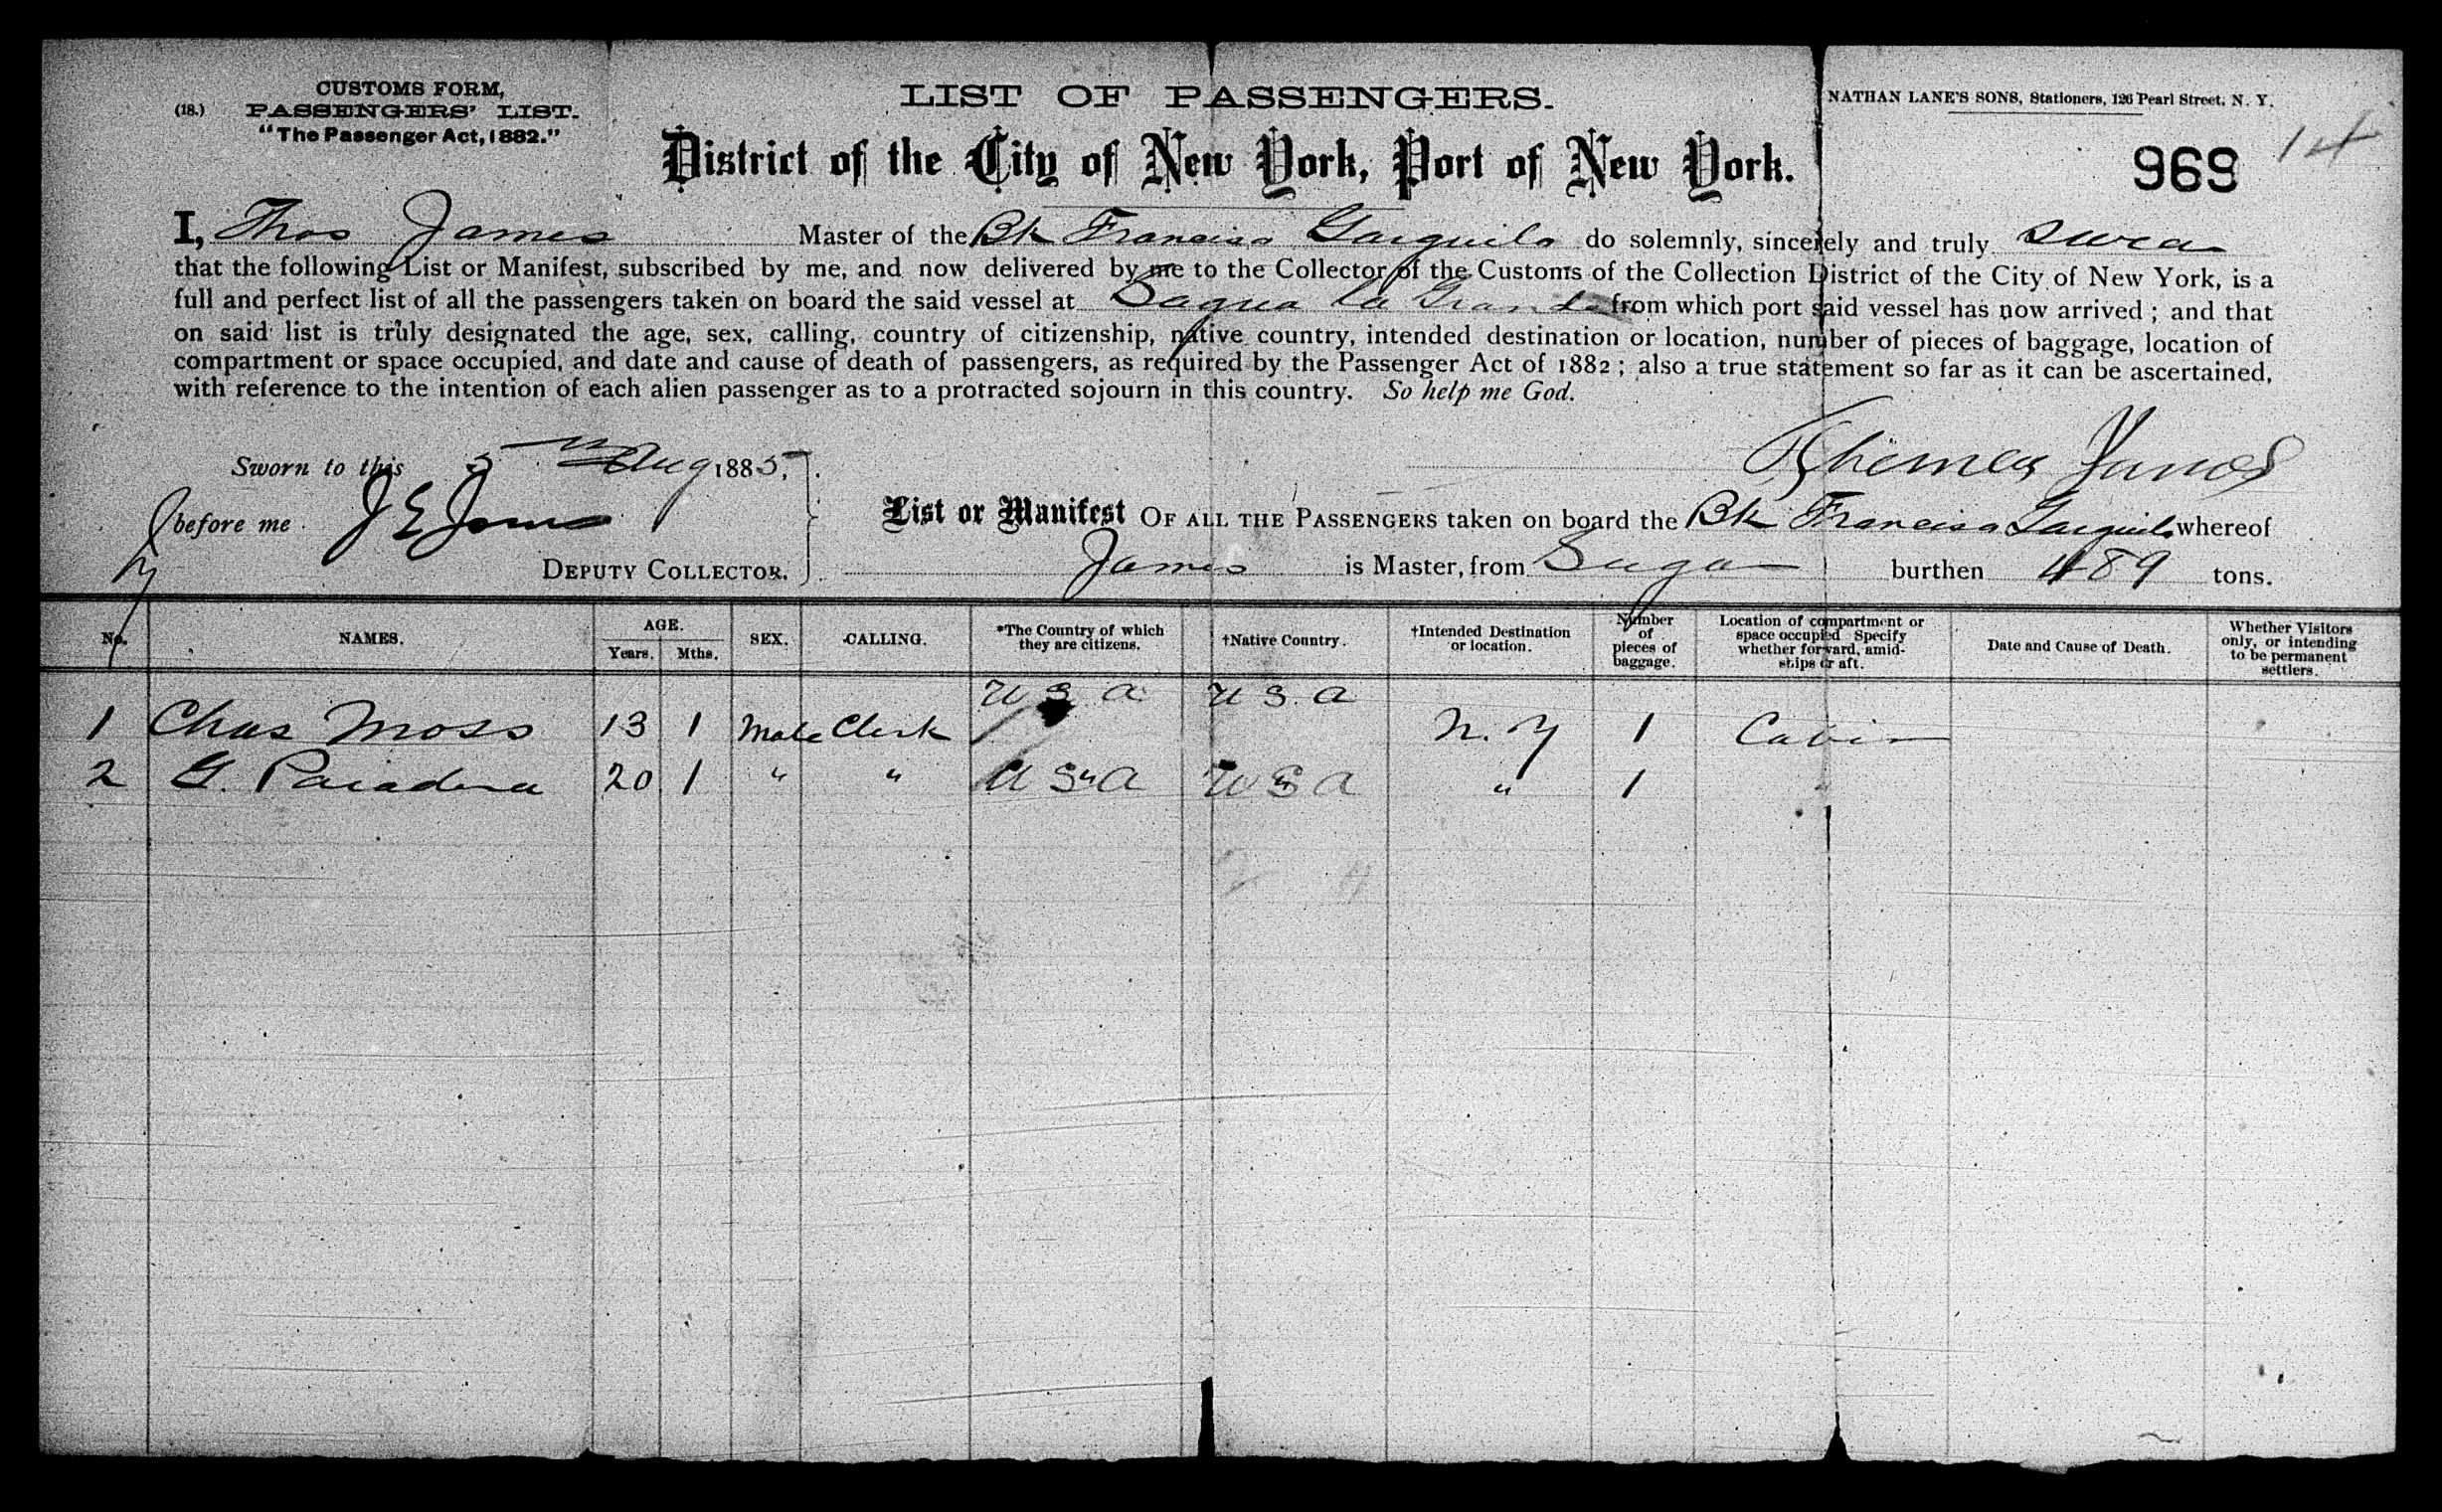 CUSTOMS FORM,
(18.) PASSENGERS' LIST.
"The Passenger Act, 1882."
LIST OF PASSENGERS.
NATHAN LANE'S SONS, Stationers, 126 Pearl Street, N. Y.
District of the City of New York, Port of New York.
969 14
I, Thos James Master of the Bk Francisa Garguilo do solemnly, sincerely and truly swear
that the following List or Manifest, subscribed by me, and now delivered by me to the Collector of the Customs of the Collection District of the City of New York, is a
full and perfect list of all the passengers taken on board the said vessel at Sagua la Grande from which port said vessel has now arrived; and that
on said list is truly designated the age, sex, calling, country of citizenship, native country, intended destination or location, number of pieces of baggage, location of
compartment or space occupied, and date and cause of death of passengers, as required by the Passenger Act of 1882; also a true statement so far as it can be ascertained,
with reference to the intention of each alien passenger as to a protracted sojourn in this country. So help me God.
Thomas James
Sworn to this 5th Aug 1885,
before me J E Jones
DEPUTY COLLECTOR.
List or Manifest OF ALL THE PASSENGERS taken on board the Bk Francisa Garguilo whereof
James is Master, from Sagua burthen 489 tons.
No. NAMES. AGE. Years. Mths. SEX. CALLING. *The Country of which they are citizens. †Native Country. †Intended Destination or location. Number of pieces of baggage. Location of compartment or space occupied Specify whether forward, amidships or aft. Date and Cause of Death. Whether Visitors only, or intending to be permanent settlers.
1 Chas Moss 13 1 Male Clerk U S A U S A N. Y 1 Cabin
2 G. 20 1 " " U S A U S A " 1 "